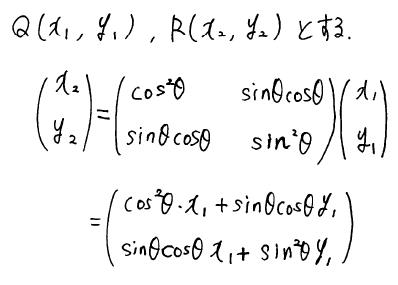 Q(x₁, y₁), R(x₂, y₂) とする.
(x₂ y₂) = (cos²θ sinθcosθ sinθcosθ sin²θ)(x₁ y₁)
= (cos²θ・x₁ + sinθcosθ y₁ sinθcosθ x₁ + sin²θ y₁)